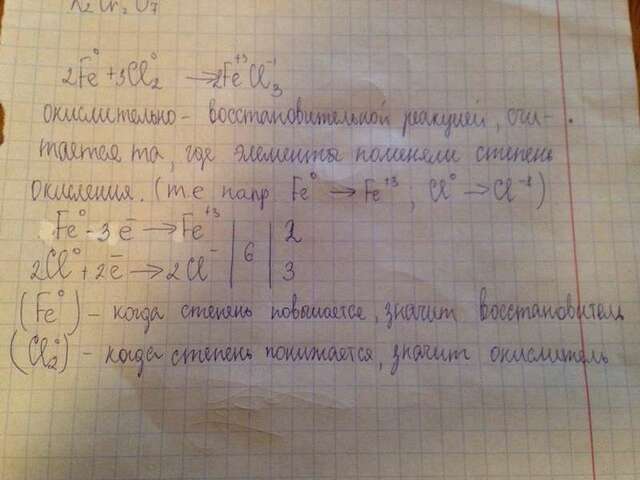 K2Cr2O7
2Fe⁰ + 3Cl₂⁰ → 2Fe⁺³Cl₃⁻¹
окислительно - восстановительной реакцией, счи-
тается та, где элементы поменяли степень
окисления. (т.е напр Fe⁰ → Fe⁺³ ; Cl⁰ → Cl⁻¹)
Fe⁰ - 3ē → Fe⁺³ | 6 | 2
2Cl⁰ + 2ē → 2Cl⁻ | 3
(Fe⁰) - когда степень повышается, значит восстановитель
(Cl₂⁰) - когда степень понижается, значит окислитель